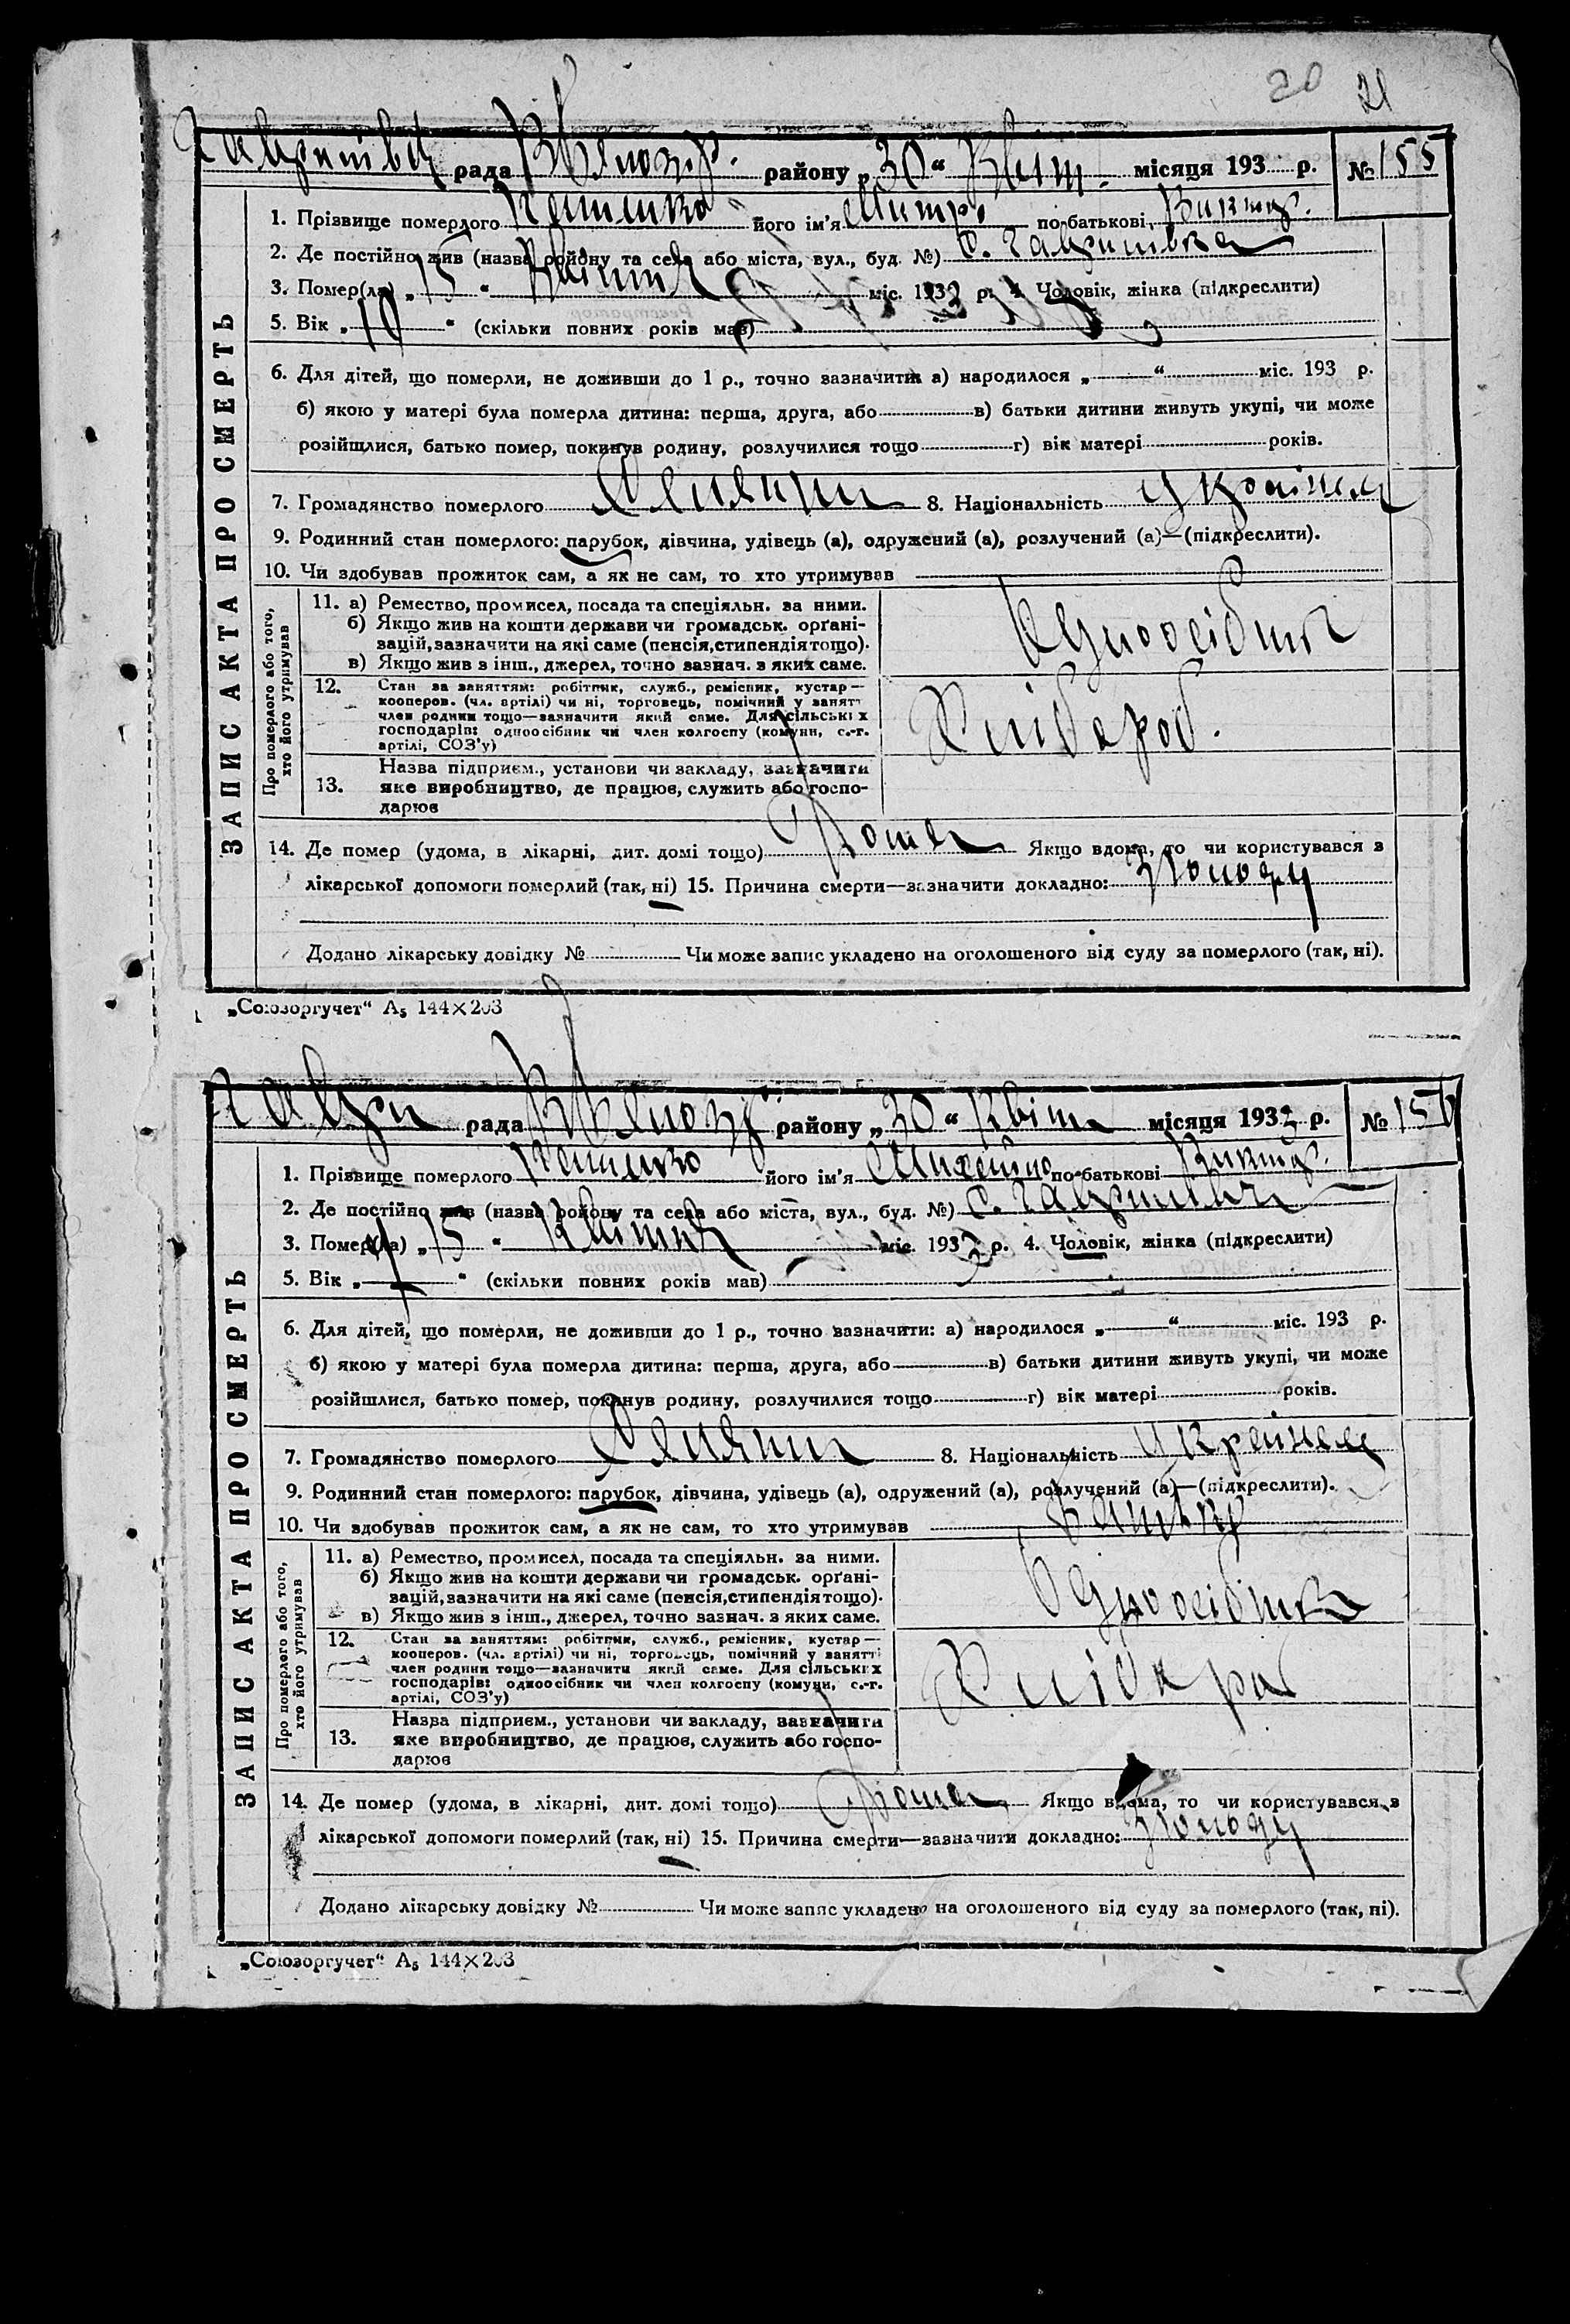 20 21
рада району „30“ Квіт. місяця 193 р. № 155
1. Прізвище померлого його ім'я Митро по-батькові Виктор.
2. Де постійно жив (назва району та села або міста, вул., буд. №) с. Гавришівка
3. Помер(ла) „15“ Квітня міс. 1933 р. 4. Чоловік, жінка (підкреслити)
5. Вік „10“ (скільки повних років мав)
6. Для дітей, що померли, не доживши до 1 р., точно зазначити: а) народилося „ “ міс. 193 р.
б) якою у матері була померла дитина: перша, друга, або в) батьки дитини живуть укупі, чи може
розійшлися, батько помер, покинув родину, розлучилися тощо г) вік матері років.
7. Громадянство померлого 8. Національність Українец
9. Родинний стан померлого: парубок, дівчина, удівець (а), одружений (а), розлучений (а)—(підкреслити).
10. Чи здобував прожиток сам, а як не сам, то хто утримував
ЗАПИС АКТА ПРО СМЕРТЬ
Про померлого або того, хто його утримував
11. а) Ремество, промисел, посада та спеціяльн. за ними.
б) Якщо жив на кошти держави чи громадськ. орґані-
зацій, зазначити на які саме (пенсія, стипендія тощо).
в) Якщо жив з інш., джерел, точно зазнач. з яких саме.
Одноосібник
12. Стан за заняттям: робітник, служб., ремісник, кустар—
кооперов. (чл. артілі) чи ні, торговець, помічний у занятт
член родини тощо—зазначити який саме. Для сільських
господарів: одноосібник чи член колгоспу (комуни, с.-г.
артілі, СОЗ'у)
Хлібороб.
13. Назва підприєм., установи чи закладу, зазначити
яке виробництво, де працює, служить або госпо-
дарює
14. Де помер (удома, в лікарні, дит. домі тощо) Дома Якщо вдома, то чи користувався з
лікарської допомоги померлий (так, ні) 15. Причина смерти—зазначити докладно: З голоду
Додано лікарську довідку № Чи може запис укладено на оголошеного від суду за померлого (так, ні).
„Союзоргучет“ А₅ 144×203
Гаври рада району „30“ Квітня місяця 1933 р. № 156
1. Прізвище померлого його ім'я Михайло по-батькові Виктор.
2. Де постійно жив (назва району та села або міста, вул., буд. №) с. Гавришівка
3. Помер(ла) „15“ Квітня міс. 1933 р. 4. Чоловік, жінка (підкреслити)
5. Вік „ “ (скільки повних років мав)
6. Для дітей, що померли, не доживши до 1 р., точно зазначити: а) народилося „ “ міс. 193 р.
б) якою у матері була померла дитина: перша, друга, або в) батьки дитини живуть укупі, чи може
розійшлися, батько помер, покинув родину, розлучилися тощо г) вік матері років.
7. Громадянство померлого 8. Національність Українец
9. Родинний стан померлого: парубок, дівчина, удівець (а), одружений (а), розлучений (а)—(підкреслити).
10. Чи здобував прожиток сам, а як не сам, то хто утримував Батько
ЗАПИС АКТА ПРО СМЕРТЬ
Про померлого або того, хто його утримував
11. а) Ремество, промисел, посада та спеціяльн. за ними.
б) Якщо жив на кошти держави чи громадськ. орґані-
зацій, зазначити на які саме (пенсія, стипендія тощо).
в) Якщо жив з інш., джерел, точно зазнач. з яких саме.
Одноосібник
12. Стан за заняттям: робітник, служб., ремісник, кустар—
кооперов. (чл. артілі) чи ні, торговець, помічний у занятті
член родини тощо—зазначити який саме. Для сільських
господарів: одноосібник чи член колгоспу (комуни, с.-г.
артілі, СОЗ'у)
13. Назва підприєм., установи чи закладу, зазначити
яке виробництво, де працює, служить або госпо-
дарює
14. Де помер (удома, в лікарні, дит. домі тощо) Дома Якщо вдома, то чи користувався з
лікарської допомоги померлий (так, ні) 15. Причина смерти—зазначити докладно: З голоду
Додано лікарську довідку № Чи може запис укладено на оголошеного від суду за померлого (так, ні).
„Союзоргучет“ А₅ 144×203